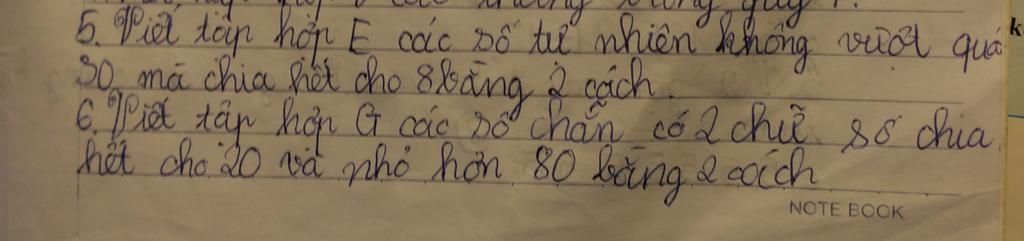 5. Viết tập hợp E các số tự nhiên không vượt quá
30 mà chia hết cho 8 bằng 2 cách.
6. Viết tập hợp G các số chẵn có 2 chữ số chia
hết cho 20 và nhỏ hơn 80 bằng 2 cách
NOTE BOOK
k